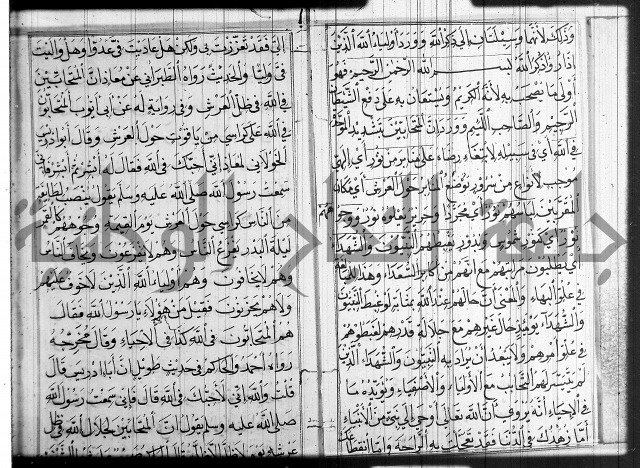 وذلك لأنهما وسيلتان إلى ذكر الله وورد أولياء الله الذين
إذا رؤا ذكر الله بسم الله الرحمن الرحيم فهو
أولى ما يصحب به لأنه الكريم ويستعان به على دفع الشيطان
الرجيم والصاحب القديم وورد إن المتحابين بتشديد الموحدة
في الله أي في سبيله لابتغاء رضاه على منابر من نور أي إلهي
موجب لأنواع من سرور وتوضع المنابر حول العرش أي مكان
المقربين لباسهم نور أي يخبر وحرير يعلوه نور ووجوههم
نور أي كنور شموس وبدور يغبطهم النبيون والشهداء
أي يطلبون مرتبتهم مع أنهم من أكابر السعداء وهذا للمبالغة
في علو البهاء والمعنى أن حالهم عند الله بمثابة لو غبط النبيون
والشهداء يومئذ حال غيرهم مع جلالة قدرهم لغبطوهم
في علو أمرهم ولا يبعد أن يراد به النبيون والشهداء الذين
لم يتيسر لهم التحابب مع الأولياء والأصفياء ويؤيده ما
في الإحياء أنه يروى أن الله تعالى أوحى إلى نبي من الأنبياء
أما زهدك في الدنيا فقد تعجلت به الراحة وأما انقطاعك
إلي فقد تعززت بي ولكن هل عاديت في عدوا وهل واليت
في وليا والحديث رواه الطبراني عن معاذ إن المتحابين
في الله في ظل العرش وفي رواية له عن أبي أيوب المتحابون
في الله على كراسي من ياقوت حول العرش وقال أبو إدريس
الخولاني لمعاذ إني أحبك في الله فقال له أبشر ثم أبشر فإني
سمعت رسول الله صلى الله عليه وسلم يقول ينصب لطائفة
من الناس كراسي حول العرش يوم القيمة وجوههم كالقمر
ليلة البدر يفزع الناس وهم لا يفزعون ويخاف الناس
وهم لا يخافون وهم أولياء الله الذين لا خوف عليهم
ولا هم يحزنون فقيل من هؤلاء يا رسول الله فقال
هم المتحابون في الله كذا في الإحياء وقال مخرجه
رواه أحمد والحاكم في حديث طويل إن أبا إدريس قال
قلت والله إني لأحبك في الله قال فإني سمعت رسول الله
صلى الله عليه وسلم يقول إن المتحابين لجلال الله في ظل
جامعة الملك